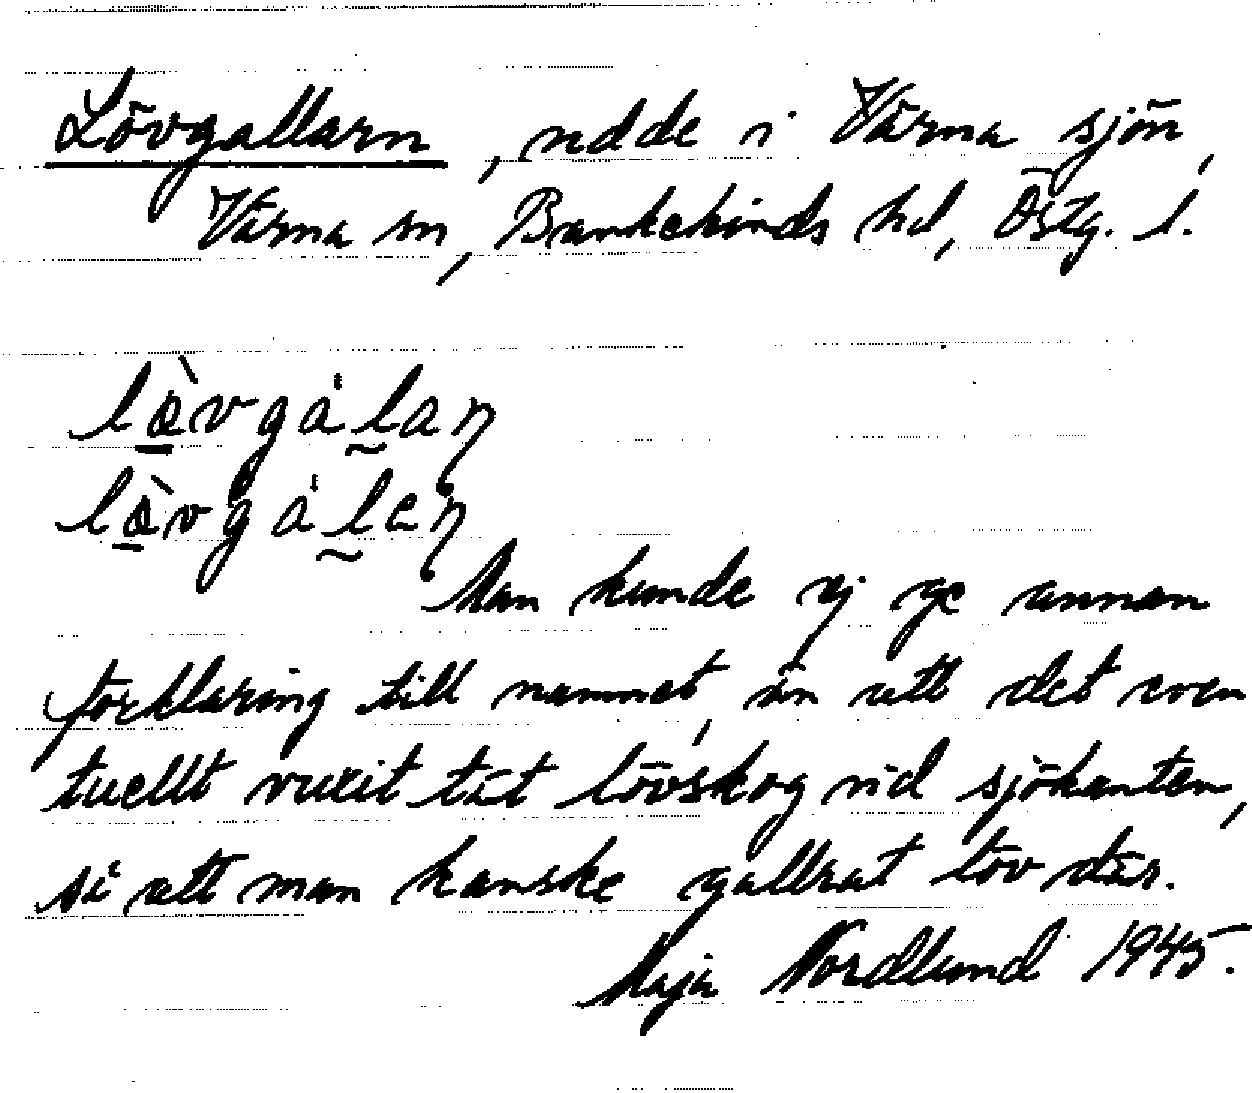 Lövgallarn, udde i Värna sjön,
Värna sn, Bankekinds hd, Östg. l.
lövgalan
lövgalen
Man kunde ej ge annan
förklaring till namnet, än att det even
tuellt vuxit tät lövskog vid sjökanten,
så att man kanske gallrat löv där.
Maja Nordlund 1945.